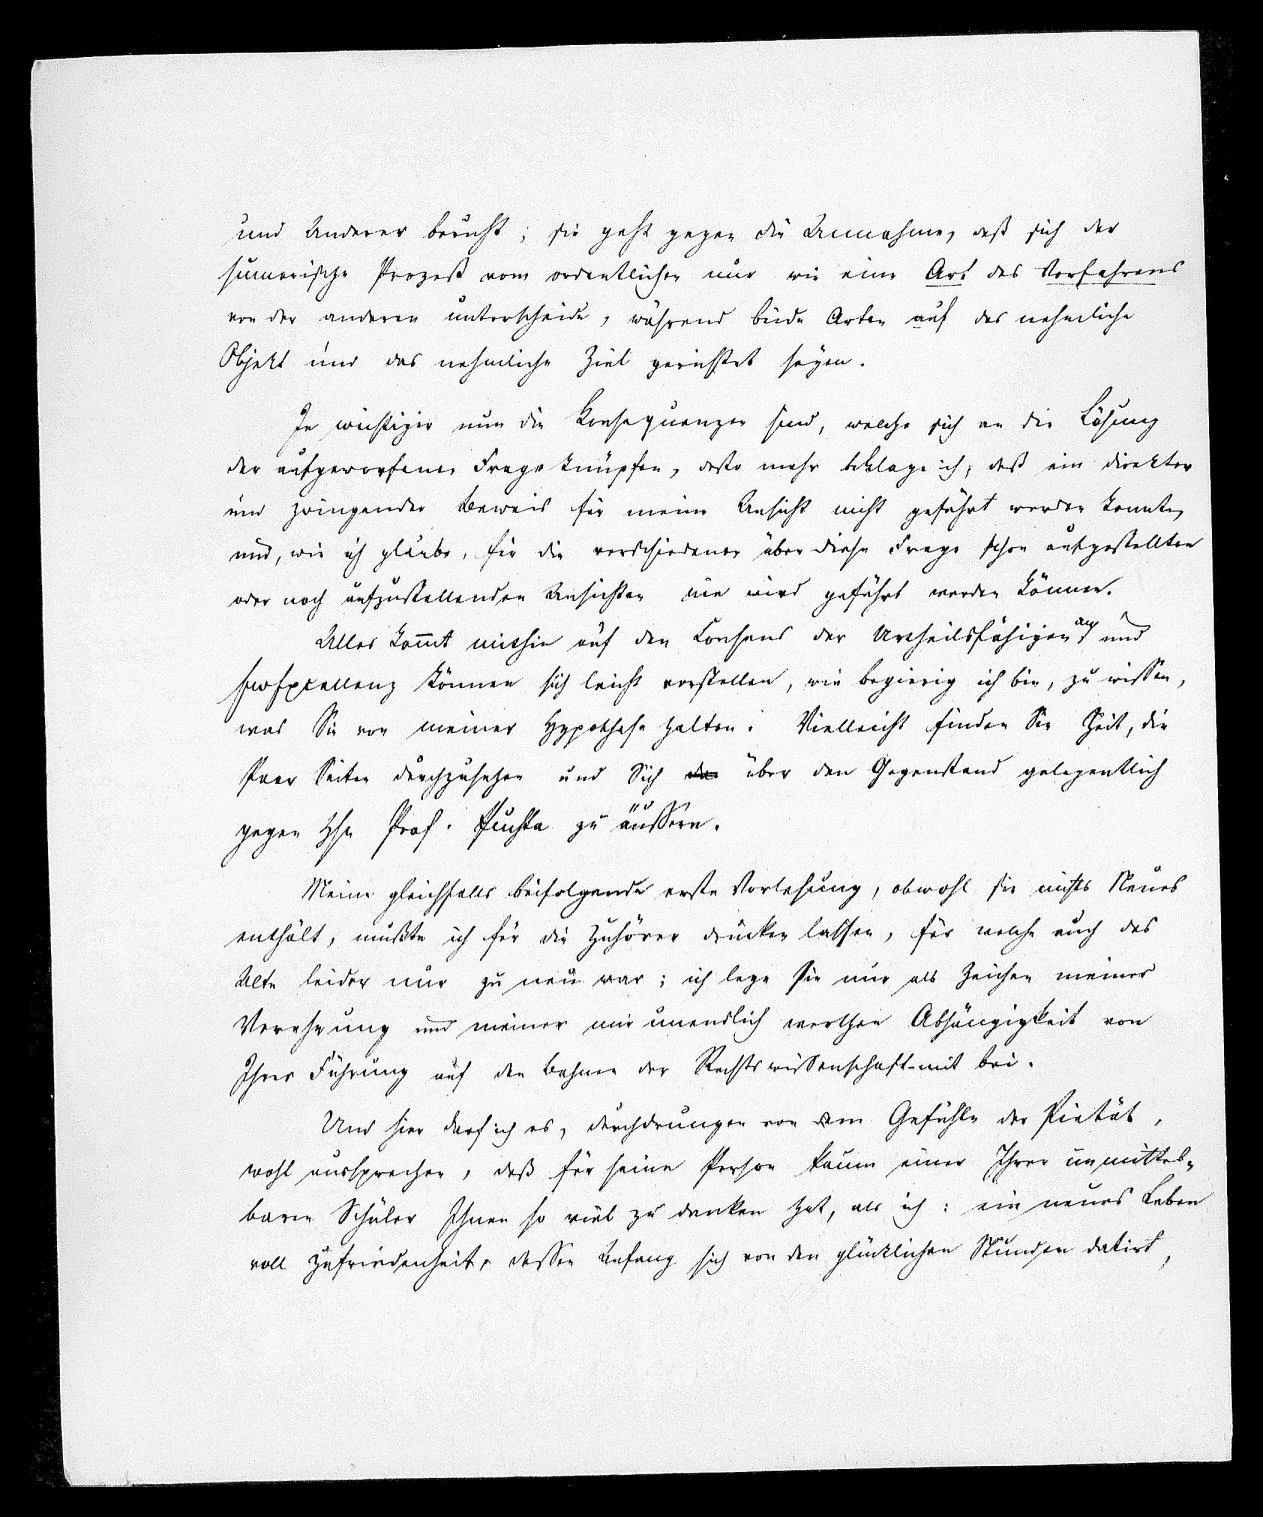 und Anderer beruht; sie geht gegen die Annahme, daß sich der
sumarische Prozeß vom ordentlichen nur wie eine Art des Verfahrens
von der anderen unterscheide, während beide Arten auf das nehmliche
Objekt und das nehmliche Ziel gerichtet seyen.
Je wichtiger nun die Konsequenzen sind, welche sich an die Lösung
der aufgeworfenen Frage knüpfen, desto mehr beklage ich, daß ein direkter
und zwingender Beweis für meine Ansicht nicht geführt werden konnte,
und, wie ich glaube, für die verschiedenen über diese Frage schon aufgestellten
oder noch aufzustellenden Ansichten nie wird geführt werden können.
Alles kom̅t mithin auf den Consens der Urtheilsfähigen an, und
Ew Excellenz können sich leicht vorstellen, wie begierig ich bin, zu wissen,
was Sie von meiner Hypothese halten. Vielleicht finden Sie Zeit, die
Paar Seiten durchzusehen und Sich über den Gegenstand gelegentlich
gegen Hrn Prof. Puchta zu äussern.
Meine gleichfalls beifolgende erste Vorlesung, obwohl sie nichts Neues
enthält, mußte ich für die Zuhörer drucken lassen, für welche auch das
Alte leider nur zu neu war; ich lege sie nur als Zeichen meiner
Verehrung und meiner mir unendlich werthen Abhängigkeit von
Ihrer Führung auf den Bahnen der Rechtswissenschaft mit bei.
Und hier darf ich es, durchdrungen von dem Gefühle der Pietät,
wohl aussprechen, daß für seine Person kaum einer Ihrer unmittel-
baren Schüler Ihnen so viel zu danken hat, als ich: ein neues Leben
voll Zufriedenheit, dessen Anfang sich von den glücklichen Stunden datirt,